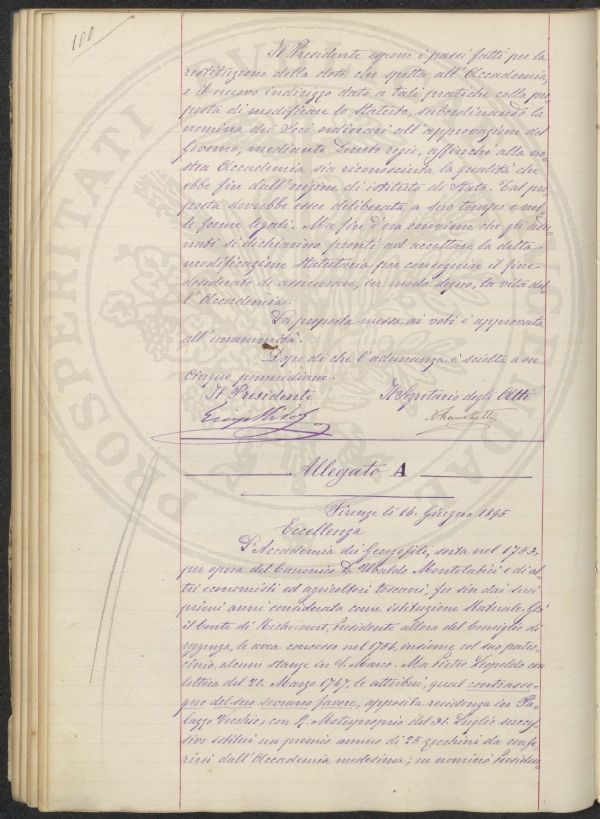 100
Il Presidente espone i passi fatti per la
restituzione della dote che spetta all'Accademia,
e il nuovo indirizzo dato a tali pratiche colla pro=
posta di modificare lo Statuto, subordinando la
nomina dei Soci ordinari all'approvazione del
Governo, mediante Decreto regio, affinchè alla no=
stra Accademia sia riconosciuta la qualità che
ebbe fin dall'origine di istituto di Stato. Tal pro
posta dovrebbe esser deliberata a suo tempo e nel=
le forme legali. Ma fin d'ora conviene che gli adu=
nati si dichiarino pronti ad accettare la detta
modificazione statutaria per conseguire il fine
desiderato di assicurare, in modo degno, la vita del
l'Accademia.
La proposta messa ai voti è approvata
all'unanimità.
Dopo di che l'adunanza è sciolta a ore
cinque pomeridiane.
Il Presidente Il Segretario degli Atti
Allegato A
Firenze li 16. Giugno 1895
Eccellenza
L'Accademia dei Georgofili, sorta nel 1753.
per opera del Canonico D. Ubaldo Montelatici e di al
tri economisti ed agricoltori toscani. fu sin dai suoi
primi anni considerata come istituzione Statuale. Già
il Conte di Richecourt, Presidente allora del Consiglio di
reggenza, le avea concesso nel 1756, insieme col suo patro
cinio, alcune stanze in S. Marco. Ma Pietro Leopoldo con
lettera del 20. Marzo 1767, le attribuì, qual contrasse=
gno del suo sovrano favore, apposita residenza in Pa=
lazzo Vecchio; con R. Motuproprio del 31. Luglio succes
sivo istituì un premio annuo di 25 zecchini da confe
rirsi dall'Accademia medesima; ne nominò Presiden=
PROSPERITATI